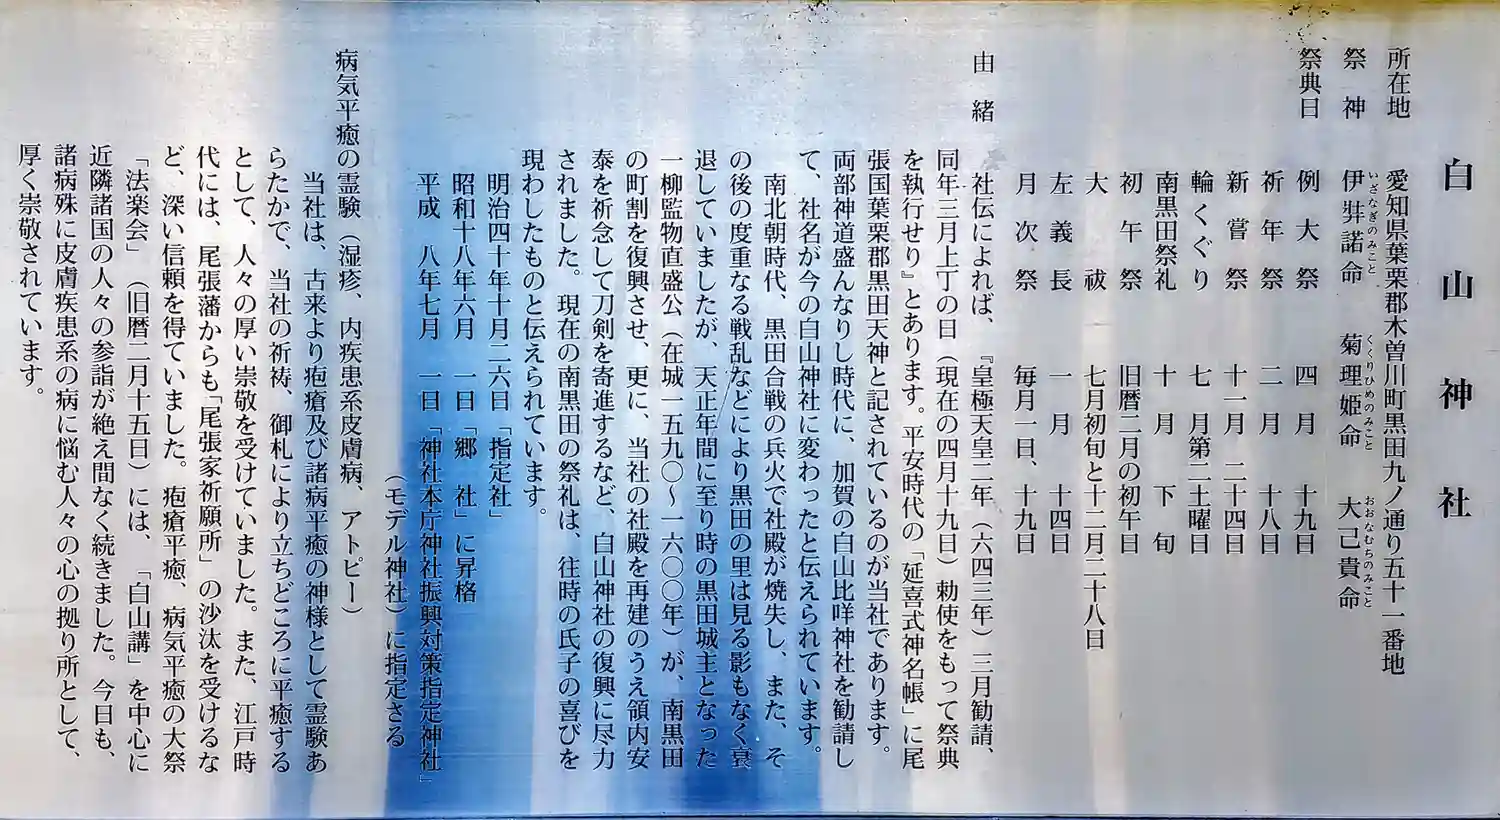 白山神社
所在地　愛知県葉栗郡木曽川町黒田九ノ通り五十一番地
祭神　伊弉諾命　菊理姫命　大己貴命
いざなぎのみこと　くくりひめのみこと　おおなむちのみこと
祭典日　例大祭　四月　十九日
祈年祭　二月　十八日
新嘗祭　十一月　二十四日
輪くぐり　七月第二土曜日
南黒田祭礼　十月　下旬
初午祭　旧暦二月の初午日
大祓　七月初旬と十二月二十八日
左義長　一月　十四日
月次祭　毎月一日、十九日
由緒
社伝によれば、『皇極天皇二年（六四三年）三月勧請、
同年三月上丁の日（現在の四月十九日）勅使をもって祭典
を執行せり』とあります。平安時代の「延喜式神名帳」に尾
張国葉栗郡黒田天神と記されているのが当社であります。
両部神道盛んなりし時代に、加賀の白山比咩神社を勧請し
て、社名が今の白山神社に変わったと伝えられています。
南北朝時代、黒田合戦の兵火で社殿が焼失し、また、そ
の後の度重なる戦乱などにより黒田の里は見る影もなく衰
退していましたが、天正年間に至り時の黒田城主となった
一柳監物直盛公（在城一五九〇～一六〇〇年）が、南黒田
の町割を復興させ、更に、当社の社殿を再建のうえ領内安
泰を祈念して刀剣を寄進するなど、白山神社の復興に尽力
されました。現在の南黒田の祭礼は、往時の氏子の喜びを
現わしたものと伝えられています。
明治四十年十月二六日「指定社」
昭和十八年六月　一日「郷　社」に昇格
平成　八年七月　一日「神社本庁神社振興対策指定神社」
（モデル神社）に指定さる
病気平癒の霊験（湿疹、内疾患系皮膚病、アトピー）
当社は、古来より疱瘡及び諸病平癒の神様として霊験あ
らたかで、当社の祈祷、御札により立ちどころに平癒する
として、人々の厚い崇敬を受けていました。また、江戸時
代には、尾張藩からも「尾張家祈願所」の沙汰を受けるな
ど、深い信頼を得ていました。疱瘡平癒、病気平癒の大祭
「法楽会」（旧暦二月十五日）には、「白山講」を中心に
近隣諸国の人々の参詣が絶え間なく続きました。今日も、
諸病殊に皮膚疾患系の病に悩む人々の心の拠り所として、
厚く崇敬されています。